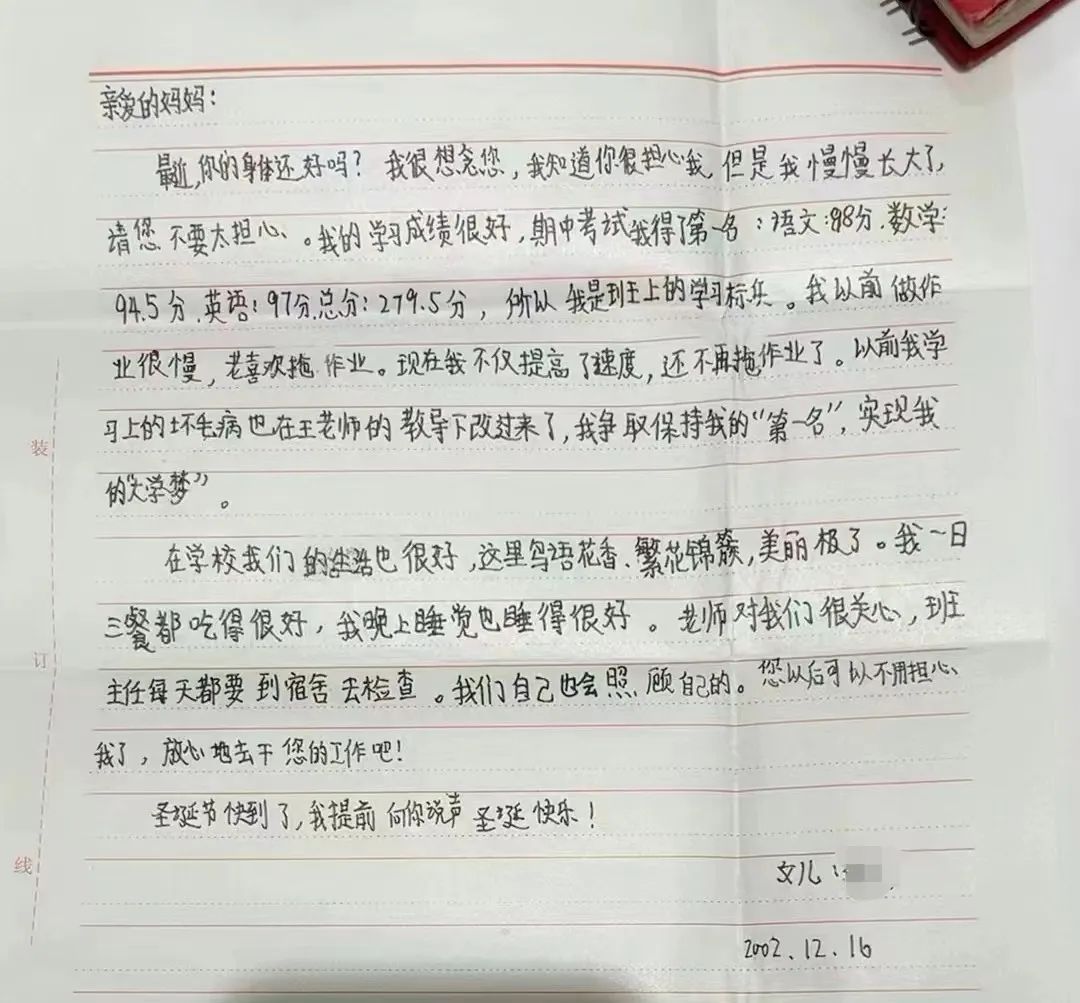 亲爱的妈妈：
最近,你的身体还好吗？我很想念您，我知道你很担心我,但是我慢慢长大了,
请您不要太担心、。我的学习成绩很好，期中考试我得了第一名：语文:98分.数学:
94.5分.英语:97分.总分:279.5分，所以我是班上的学习标兵。我以前做作
业很慢，老喜欢拖作业。现在我不仅提高了速度，还不再拖作业了。以前我学
习上的坏毛病也在王老师的教导下改过来了,我争取保持我的“第一名”，实现我
的“大学梦”。
在学校我们的生活也很好，这里鸟语花香、繁花锦簇,美丽极了。我一日
三餐都吃得很好，我晚上睡觉也睡得很好。老师对我们很关心，班
主任每天都要到宿舍去检查。我们自己也会照顾自己的。您以后可以不用担心
我了，放心地去干您的工作吧！
圣诞节快到了,我提前向你说声圣诞快乐！
女儿：
2002.12.16
装
订
线